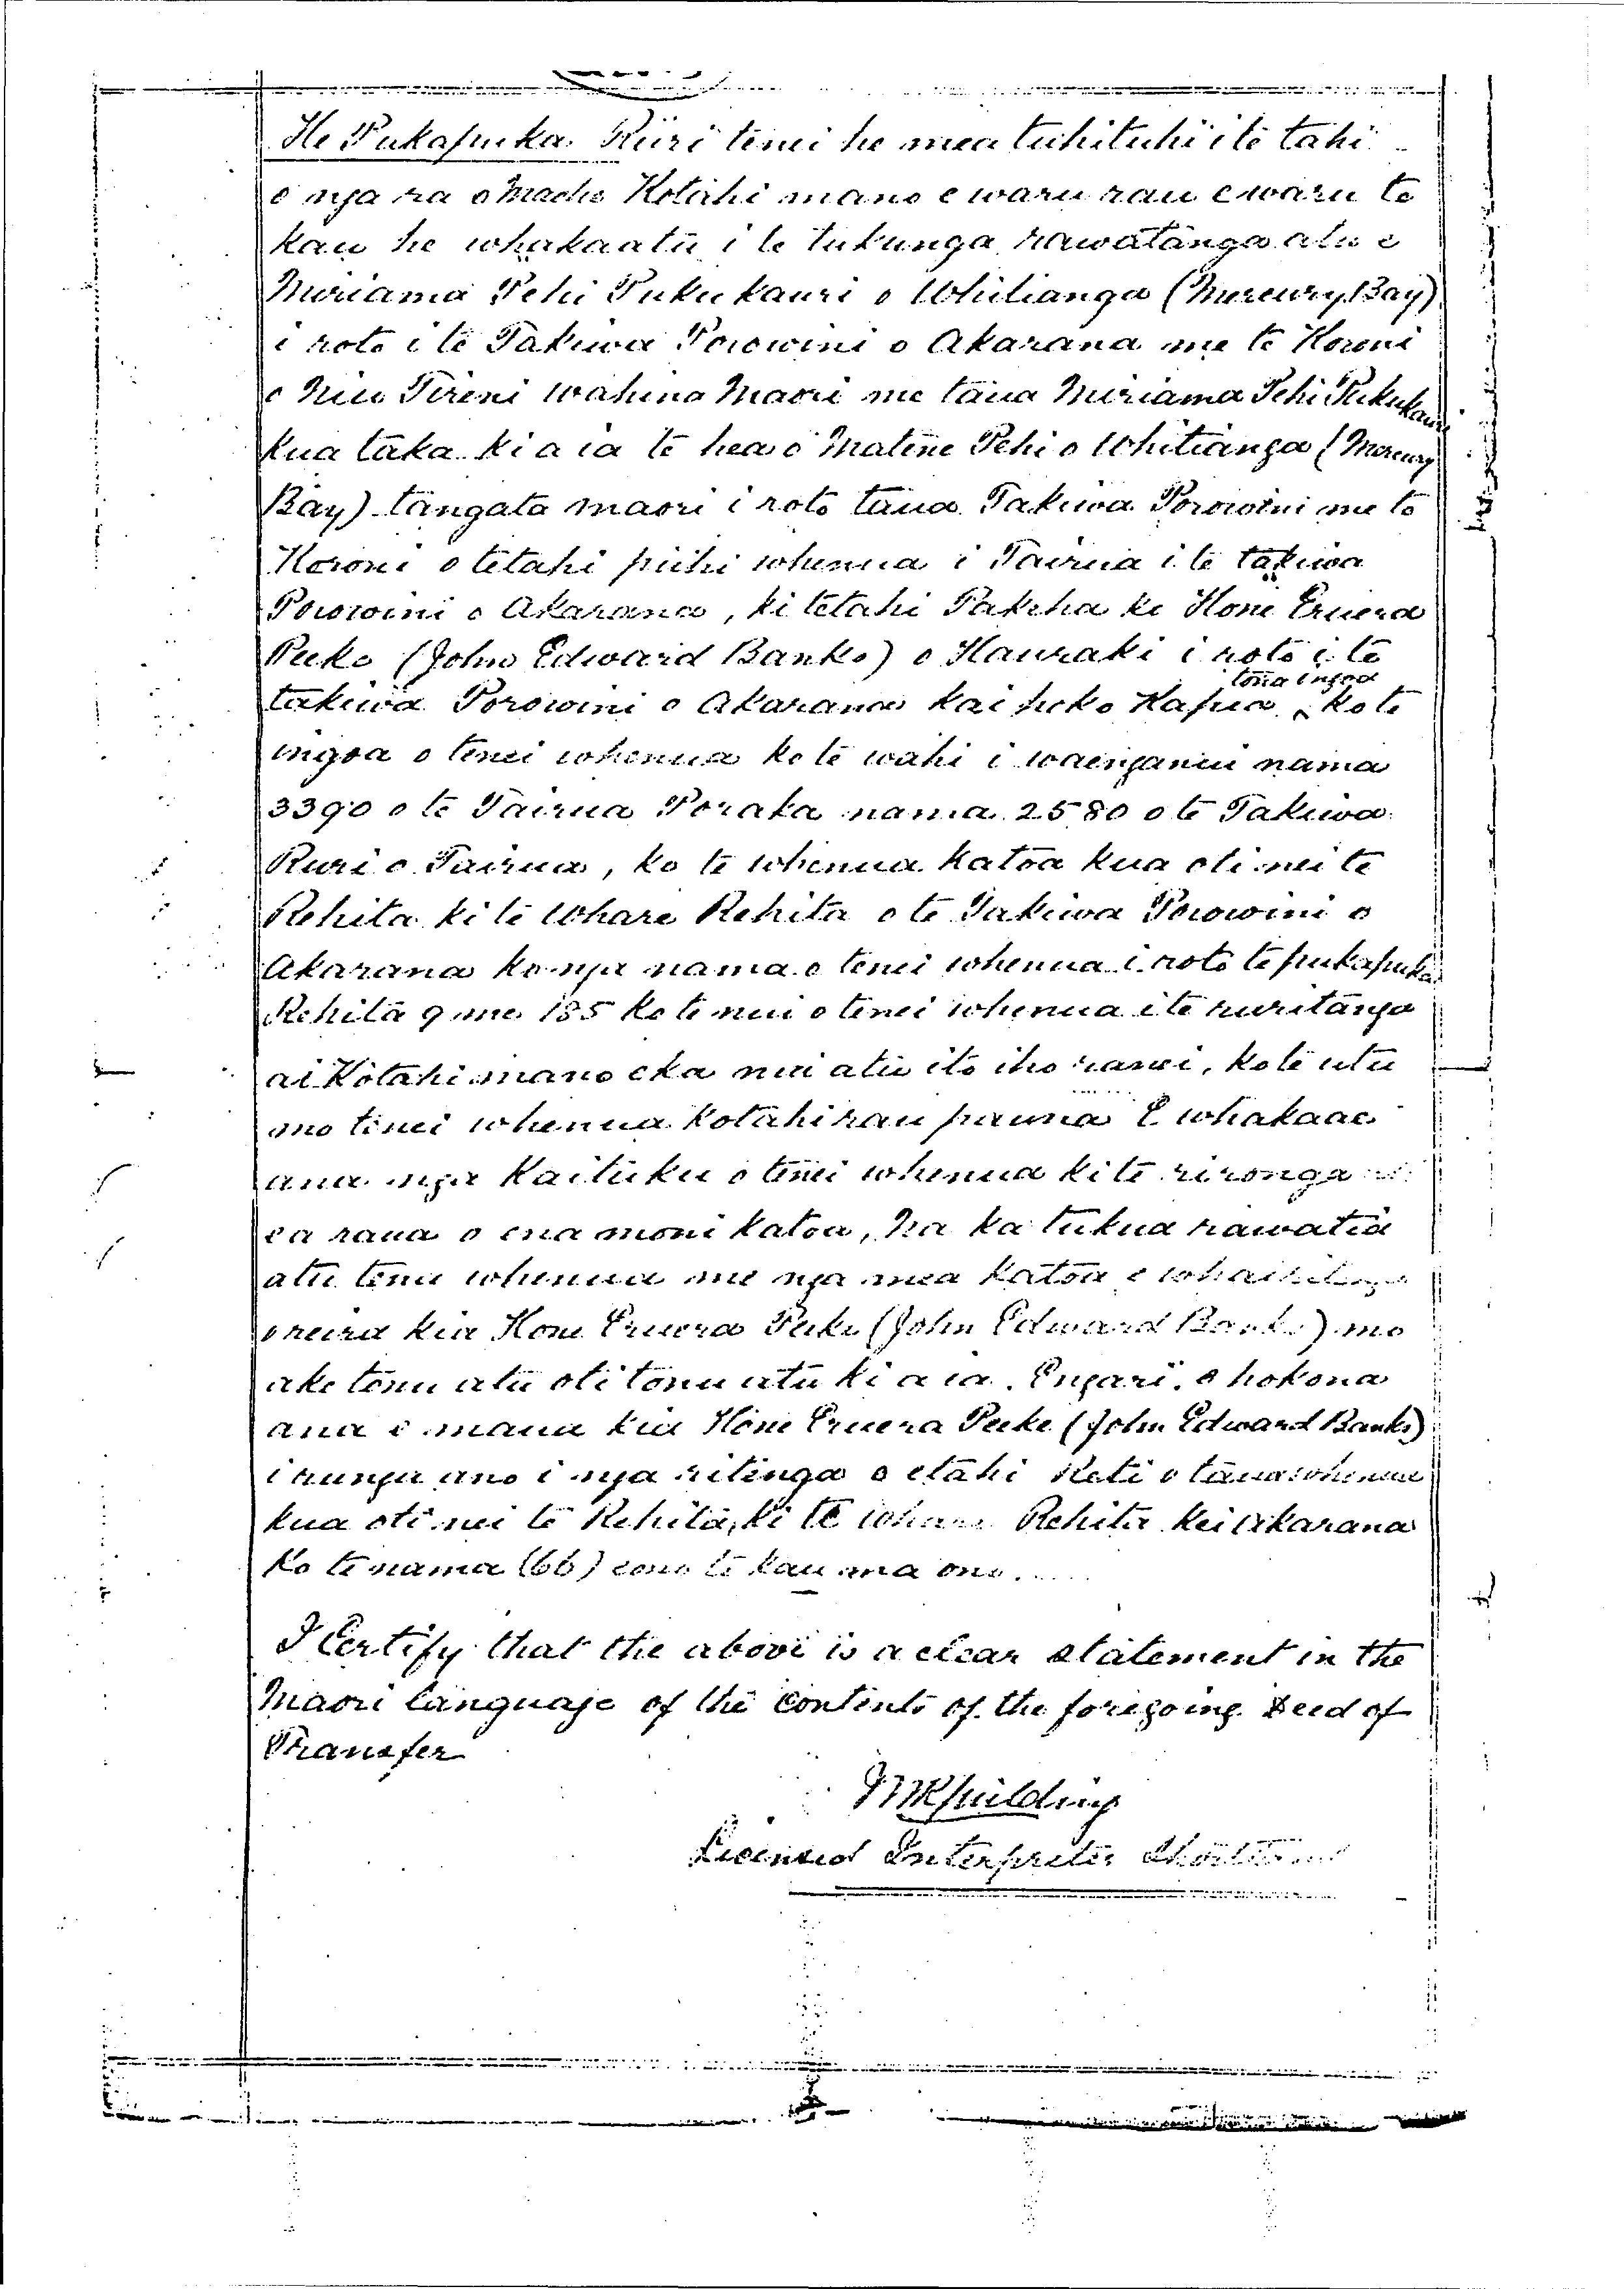 He Pukapuka Riiri tenei he mea tuhituhi i te tahi
o nga ra o Maehe Kotahi mano e waru rau e waru te
kau he whakaatu i te tukunga rawatanga atu e
Miriama Pehi Pukukauri o Whitianga (Mercury Bay)
i roto i te Takiwa Porowini o Akarana me te Koroni
o Niu Tireni wahina Maori me taua Miriama Pehi Pukukauri
kua taka ki a ia te hea o Matene Pehi o Whitianga (Mercury
Bay) tangata maori i roto taua Takiwa Porowini me te
Koroni o tetahi piihi whenua i Tairua i te takiwa
Porowini o Akarana, ki tetahi Pakeha ko Hone Eruera
Peeke (John Edward Banks) o Hauraki i roto i te
takiwa Porowini o Akarana kai hoko Kapia ^ ko te
tona ingoa
ingoa o tenei whenua ko te wahi i waenganui nama
3390 o te Tairua Poraka nama 2580 o te Takiwa
Ruri o Tairua, ko te whenua katoa kua oti nei te
Rehita ki te Whare Rehita o te Takiwa Porowini o
Akarana ko nga nama o tenei whenua i roto te pukapuka
Rehita 9 me 185 ko te nui o tenei whenua i te ruritanga
ai Kotahi mano eka nui atu ito iho ranei, ko te utu
mo tenei whenua kotahi rau pauna E whakaae
ana nga Kaituku o tenei whenua ki te rironga
ea raua o ena moni katoa, Na ka tukua rawatia
atu tenei whenua me nga mea katoa e
o reira kia Hone Eruera Peeke (John Edward Banks) mo
ake tonu atu oti tonu atu ki a ia. Engari, e hokona
ana e maua kia Hone Eruera Peeke (John Edward Banks)
i runga ano i nga ritenga o etahi Reti o taua whenua
kua oti nei te Rehita, ki te whare Rehita kei Akarana
Ko te nama (66) e ono te kau ma ono.
I Certify that the above is a clear statement in the
Maori language of the contents of the foregoing Deed of
Transfer
Licensed Interpreter